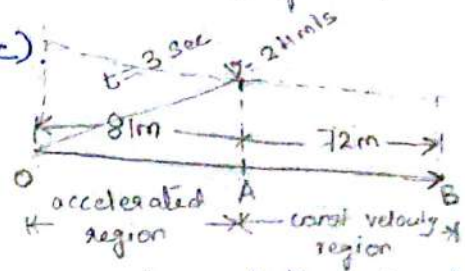 c).
t= 3 sec
V= 24m/s
81m
72m
O
A
B
accelerated region
const velocity region